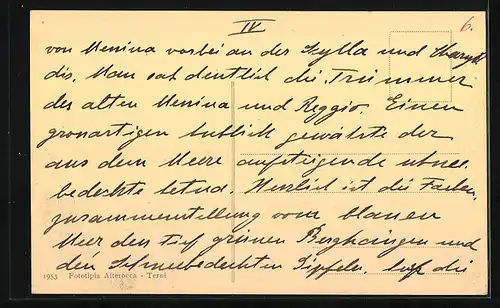 IV
6.
von Messina vorbei an der Scylla und Charyb
dis. Man sah deutlich die Trümmer
des alten Messina und Reggio. Einen
grossartigen Anblick gewährte der
aus dem Meere aufsteigende schnee
bedeckte Aetna. Herrlich ist die Farben
zusammenstellung vom blauen
Meer den tief grünen Berghängen und
den schneebedeckten Gipfeln. die
1953 Fototipia Alterocca - Terni